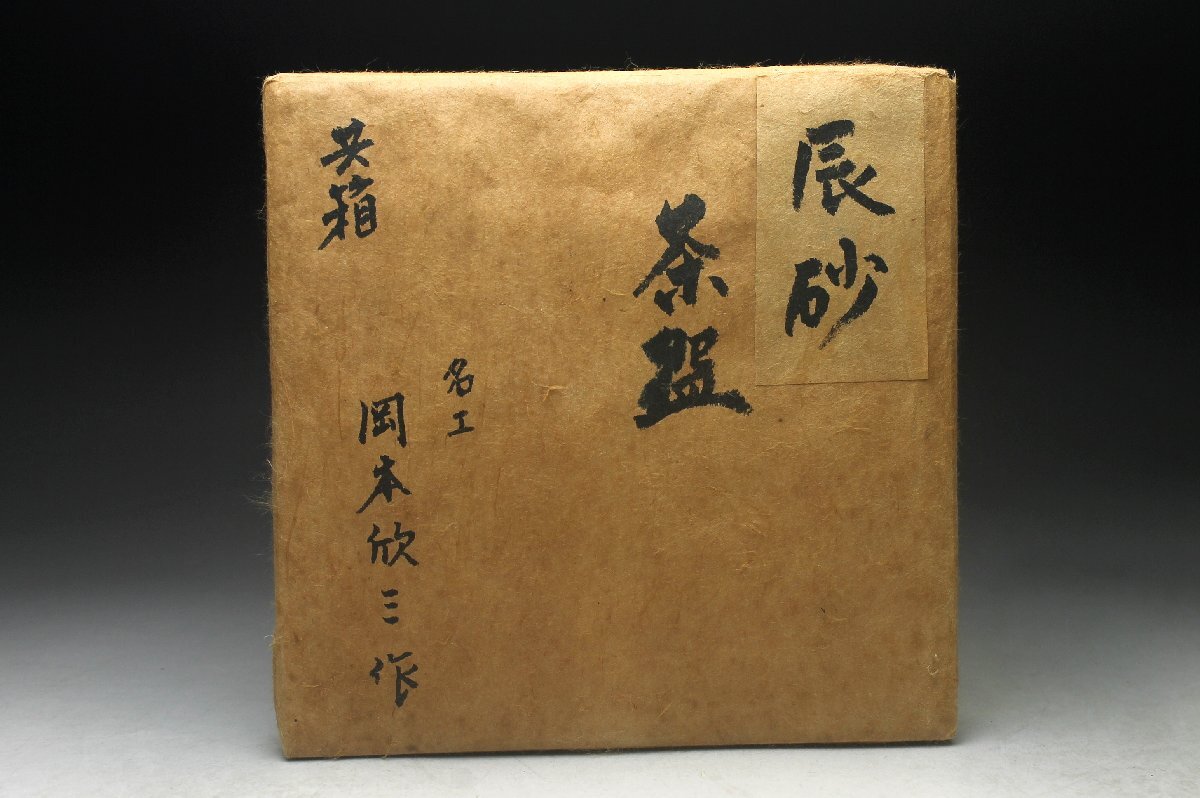 辰砂
茶盌
名工
岡本欣三作
共箱